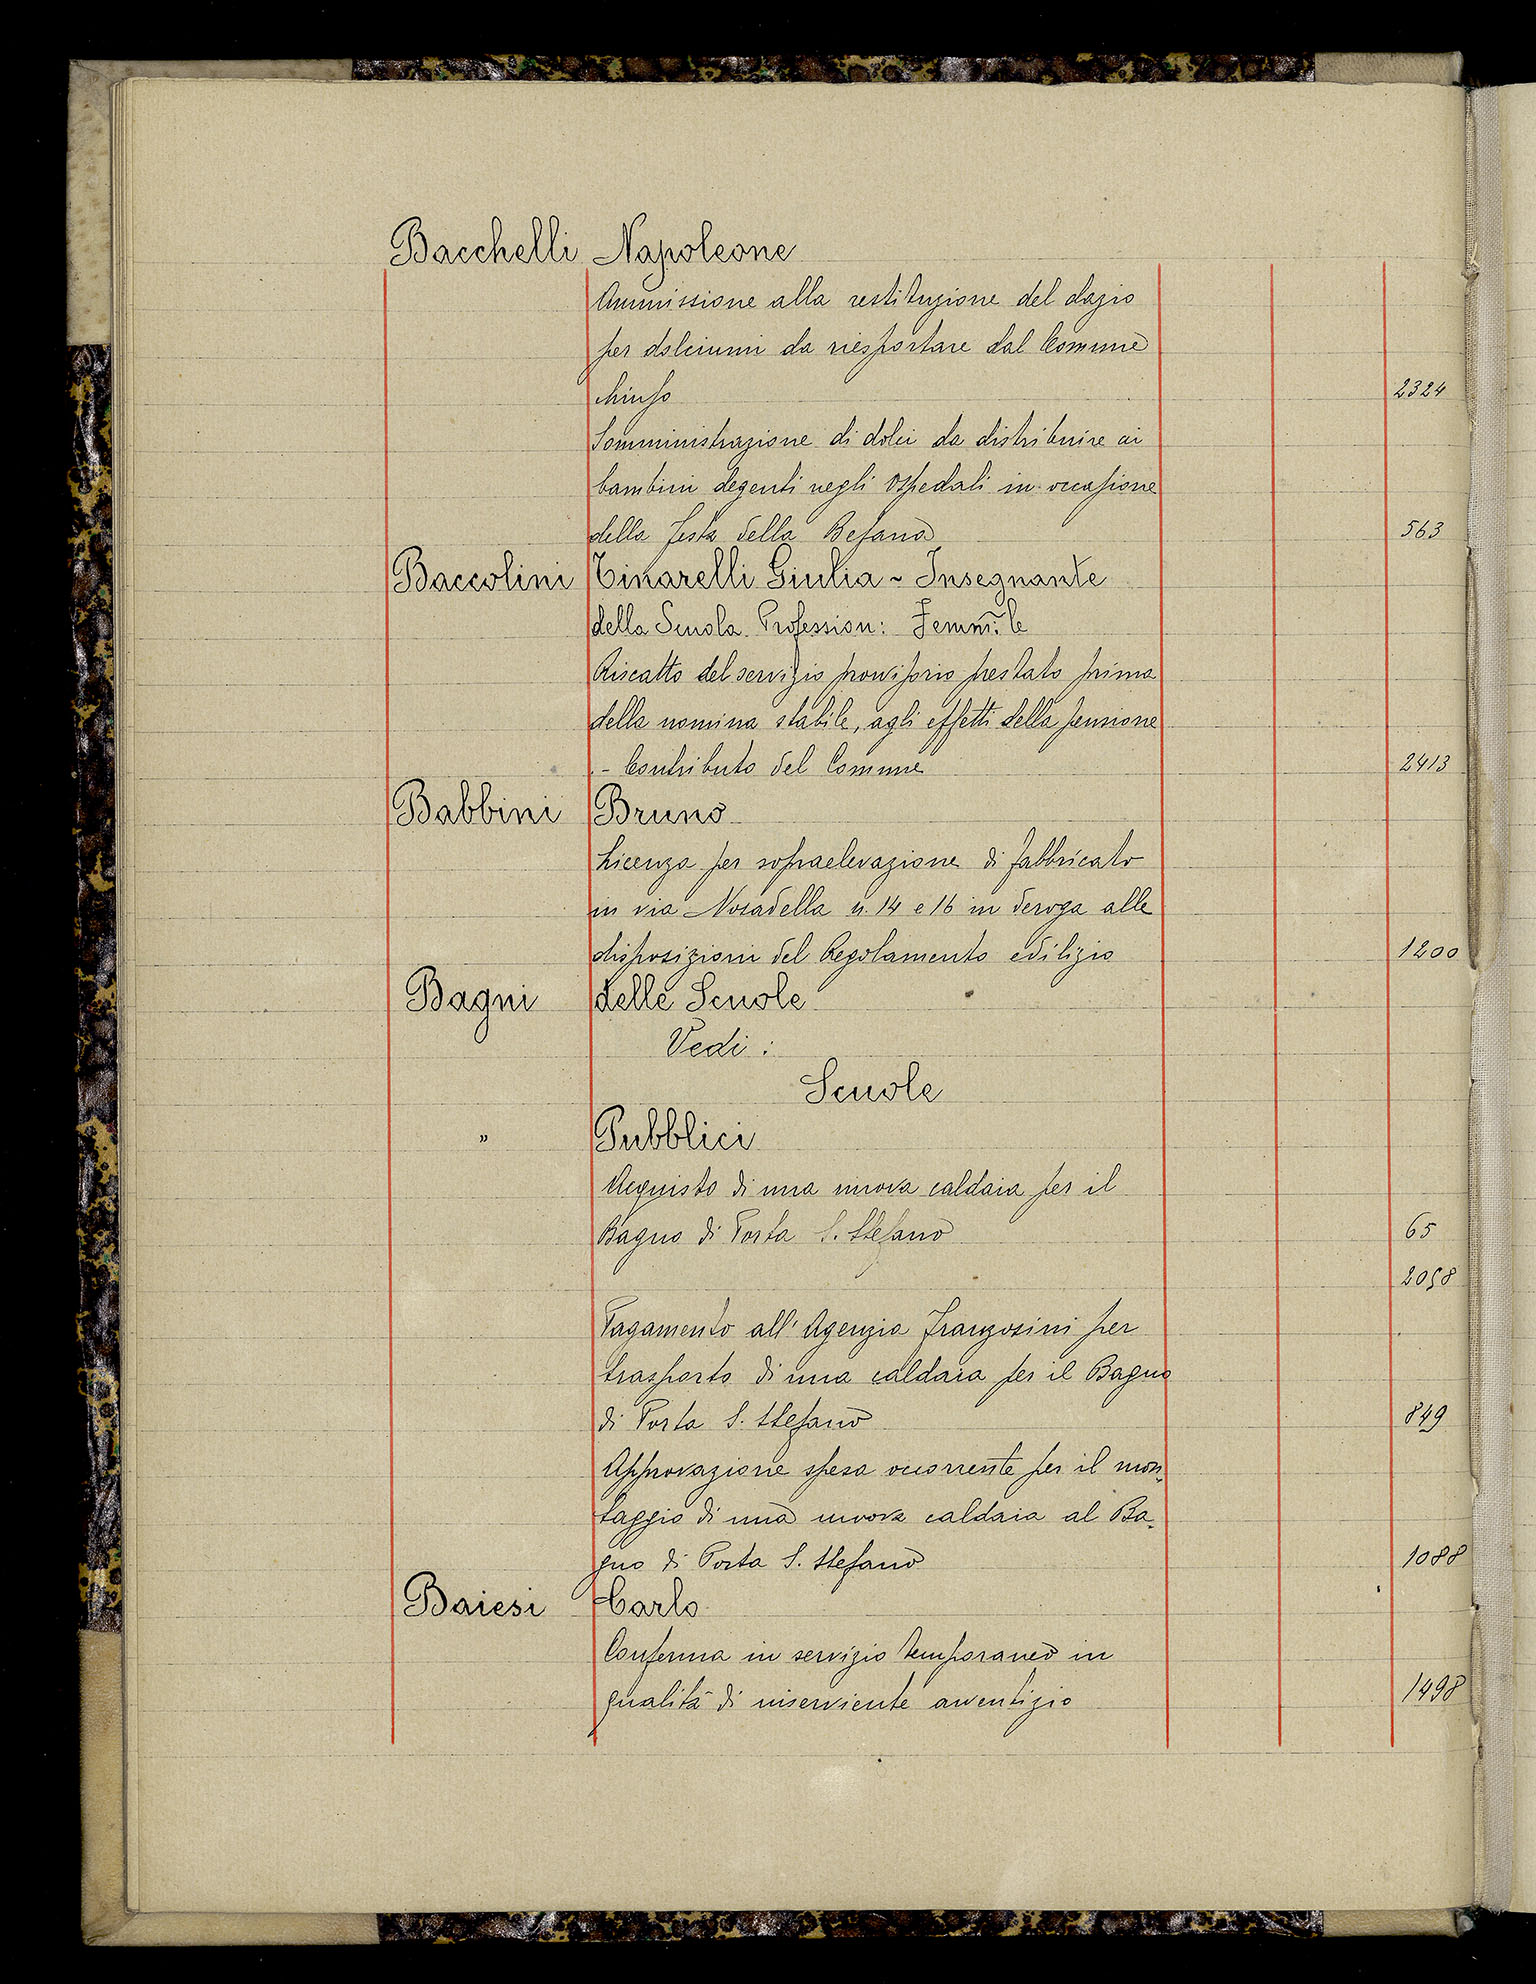 Bacchelli Napoleone
Ammissione alla restituzione del dazio
per dolciumi da riesportare dal Comune
chiuso 2324
Somministrazione di dolci da distribuire ai
bambini degenti negli Ospedali in occasione
della festa della Befana 563
Baccolini Tinarelli Giulia ~ Insegnante
della Scuola Profession: Femm:le
Riscatto del servizio provvisorio prestato prima
della nomina stabile, agli effetti della pensione
- Contributo del Comune 2413
Babbini Bruno
Licenza per sopraelevazione di fabbricato
in via Nosadella n. 14 e 16 in deroga alle
disposizioni del Regolamento edilizio 1200
Bagni delle Scuole
Vedi :
Scuole
" Pubblici
Acquisto di una nuova caldaia per il
Bagno di Porta S. Stefano 65
2058
Pagamento all'Agenzia Franzosini per
trasporto di una caldaia per il Bagno
di Porta S. Stefano 849
Approvazione spesa occorrente per il mon-
taggio di una nuova caldaia al Ba-
gno di Porta S. Stefano 1088
Baiesi Carlo
Conferma in servizio temporaneo in
qualità di inserviente avventizio 1498